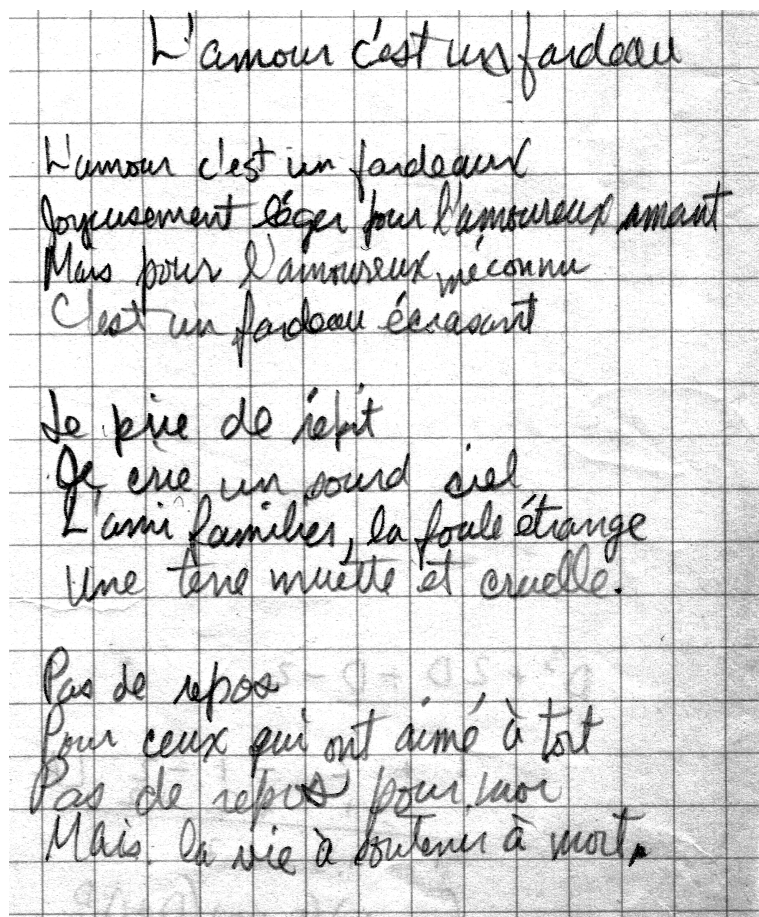 L'amour c'est un fardeau
L'amour c'est un fardeaux
Joyeusement léger pour l'amoureux amant
Mais pour l'amoureux méconnu
C'est un fardeau écrasant
Je prie de répit
Je crie un sourd ciel
L'ami familier, la foule étrange
Une terre muette et cruelle.
Pas de repos
Pour ceux qui ont aimé à tort
Pas de repos pour moi
Mais la vie à soutenir à mort.